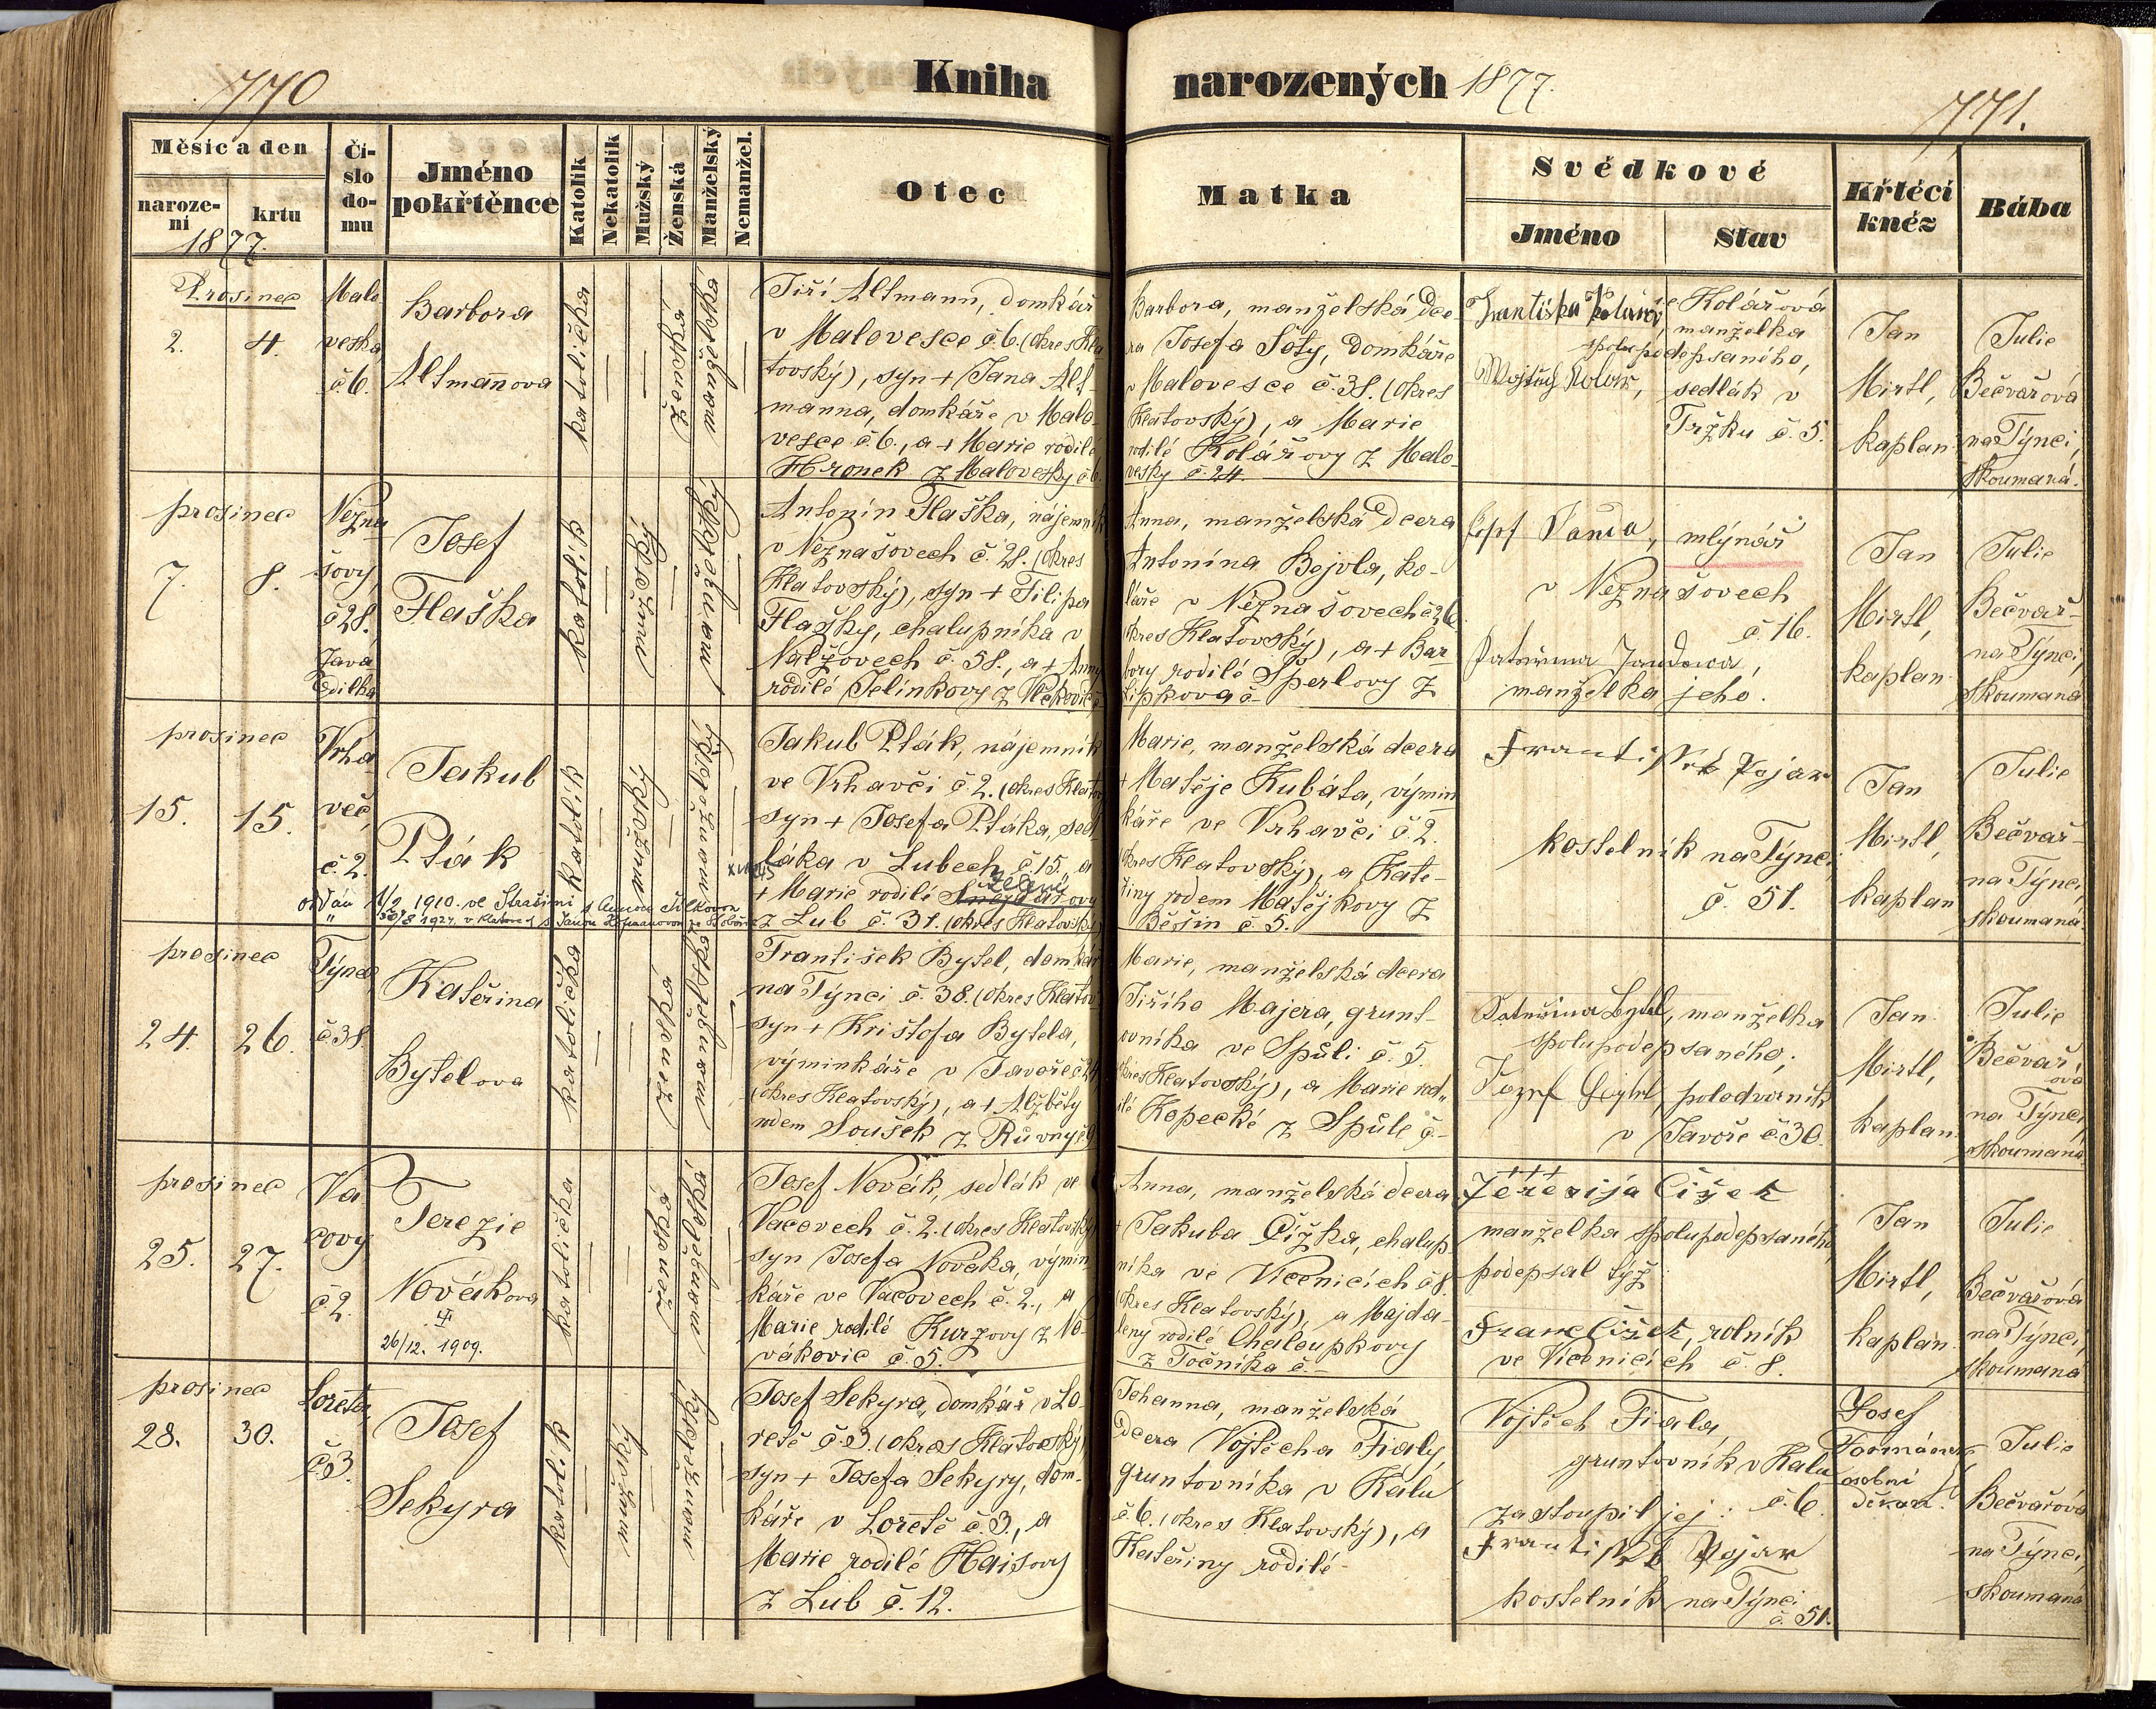 770
Kniha
narozených 1877.
771.
Měsíc a den
naroze-
ní
krtu
1877.
Čí-
slo
do-
mu
Jméno
pokřtěnce
Katolík
Nekatolík
Mužský
Ženská
Manželský
Nemanžel.
Otec
Matka
Svědkové
Jméno
Stav
Křtěcí
kněz
Bába
Prosinec
2.
4.
Malo
veska
č 6.
Barbora
Altmaňova
katolička
ženská
manželská
Jiří Altmann, domkář
v Malovesce č. 6. (okres Kla
tovský), syn + Jana Alt-
manna, domkáře v Malo-
vesce č. 6., a + Marie rodilé
Hronek z Malovesky č 6.
Barbora, manželská dce
ra Josefa Šoty, domkáře
v Malovesce č. 38. (okres
Klatovský), a Marie
rodilé Kolářovy z Malo-
vesky č. 24.
Františka Kolářová
Kolářová
manželka
spolupodepsaného,
Wojtěch Kolář,
sedlák v
Tržku č. 5.
Jan
Mirtl,
kaplan
Julie
Bečvářová
na Týnci,
skoumaná.
prosinec
7.
8.
Nezna
šovy,
č 28.
Javá
Edilka
Josef
Flaška
katolík
mužský
manželský
Antonín Flaška, nájemník
v Neznašovech č. 28. (okres
Klatovský), syn + Filipa
Flašky, chalupníka v
Nalžovech č. 58., a + Anny
rodilé Jelínkovy z Vlčkovic č
Anna, manželská dcera
Antonína Bejvla, ko-
láře v Neznašovech č 26.
(okres Klatovský), a + Bar-
bory rodilé Šperlovy z
Lipkova č-
Josef Janda, mlýnář
v Neznašovech
č. 16.
manželka jeho.
Jan
Mirtl,
kaplan
Julie
Bečvář-
na Týnci,
skoumaná
prosinec
15.
15.
Vrha-
več,
č. 2.
Jakub
Pták
katolík
mužský
manželský
oddán 1/2 1910. ve Strašíni s Annou Jílkovou
Jakub Pták, nájemník
ve Vrhavči č. 2. (okres Klatov
syn + Josefa Ptáka, sed-
láka v Lubech č. 15., a
+ Marie rodilé
z Lub č. 31. (okres Klatovský)
Marie, manželská dcera
+ Matěje Kubáta, výmin
káře ve Vrhavči č. 2.
(okres Klatovský), a Kate-
řiny rodem Matějkovy z
Běšin č. 5.
František Pojar
kostelník na Týnci
č. 51.
Jan
Mirtl,
kaplan
Julie
Bečvář-
na Týnci,
skoumaná
prosinec
24.
26.
Týnec
č 38.
Kateřina
Bytelova
katolička
ženská
manželská
František Bytel, domkář
na Týnci č. 38. (okres Klatov-
syn + Krištofa Bytela,
výminkáře v Javoře č 24
(okres Klatovský), a + Alžběty
rodem Soušek z Růvny č 9
Marie, manželská dcera
Jiřího Majera, grunt-
ovníka ve Spůli č. 5.
(okres Klatovský), a Marie rod„
ilé Kopecké z Spůle č-
Kateřina Bytel, manželka
spolupodepsaného;
Jozef Beytel, polodvorník
v Javoře č. 30.
Jan
Mirtl,
kaplan.
Julie
Bečvář
ová
na Týnci,
skoumaná
prosinec
25.
27.
Va
covy
č. 2.
Terezie
Nováková
26/12. 1909.
katolička
ženská
manželská
Josef Novák, sedlák ve
Vacovech č. 2. (okres Klatovský)
syn Josefa Nováka, výmin
káře ve Vacovech č. 2., a
Marie rodilé Kurzovy z No-
vákovic č. 5.
Anna, manželská dcera
+ Jakuba Čížka, chalup
níka ve Vícenicích č 8.
(okres Klatovský), a Majda-
leny rodilé Chaloupkovy
z Točníka č.-
+++
Térezija Čížek
manželka spolupodepsaného,
podepsal týž
Franc Čížek, rolník
ve Vícenicích č. 8.
Jan
Mirtl,
kaplan
Julie
Bečvářová
na Týnci,
skoumaná
prosinec
28.
30.
Loreta,
č 3.
Josef
Sekyra
katolík
mužský
manželský
Josef Sekyra, domkář v Lo-
retě č. 3. (okres Klatovský)
syn + Josefa Sekyry, dom-
káře v Loretě č 3., a
Marie rodilé Haisovy
z Lub č. 12.
Johanna, manželská
dcera Vojtěcha Fialy,
gruntovníka v Kálu
č. 6. (okres Klatovský), a
Kateřiny rodilé-
Vojtěch Fiala,
gruntovník v Kálu
č. 6.
zastoupil jej:
František Pojar
kostelník na Týnci
č. 51.
Josef
osobní
děkan.
Julie
Bečvářová
na Týnci,
skoumaná